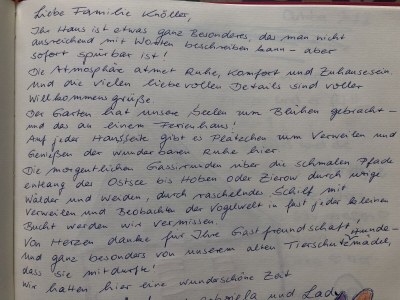 Liebe Familie Knöller,
Ihr Haus ist etwas ganz Besonderes, das man nicht
ausreichend mit Worten beschreiben kann – aber
sofort spürbar ist!
Die Atmosphäre atmet Ruhe, Komfort und Zuhausesein.
Und die vielen liebevollen Details sind voller
Willkommensgrüße
Der Garten hat unsere Seelen zum Blühen gebracht –
und das an einem Ferienhaus!
Auf jeder Hausseite gibt es Plätzchen zum Verweilen und
Genießen der wunderbaren Ruhe hier
Die morgentlichen Gassirunden über die schmalen Pfade
entlang der Ostsee bis Hoben oder Zierow durch urige
Wälder und Weiden, durch raschelndes Schilf mit
Verweilen und Beobachten der Vogelwelt in fast jeder kleinen
Bucht werden wir vermissen!
Von Herzen danke für Ihre Gastfreundschaft!
und ganz besonders von unserem alten Tierschutzhunde-
mädel,
dass sie mitdurfte!
Wir hatten hier eine wunderschöne Zeit
Gabriela und Lady